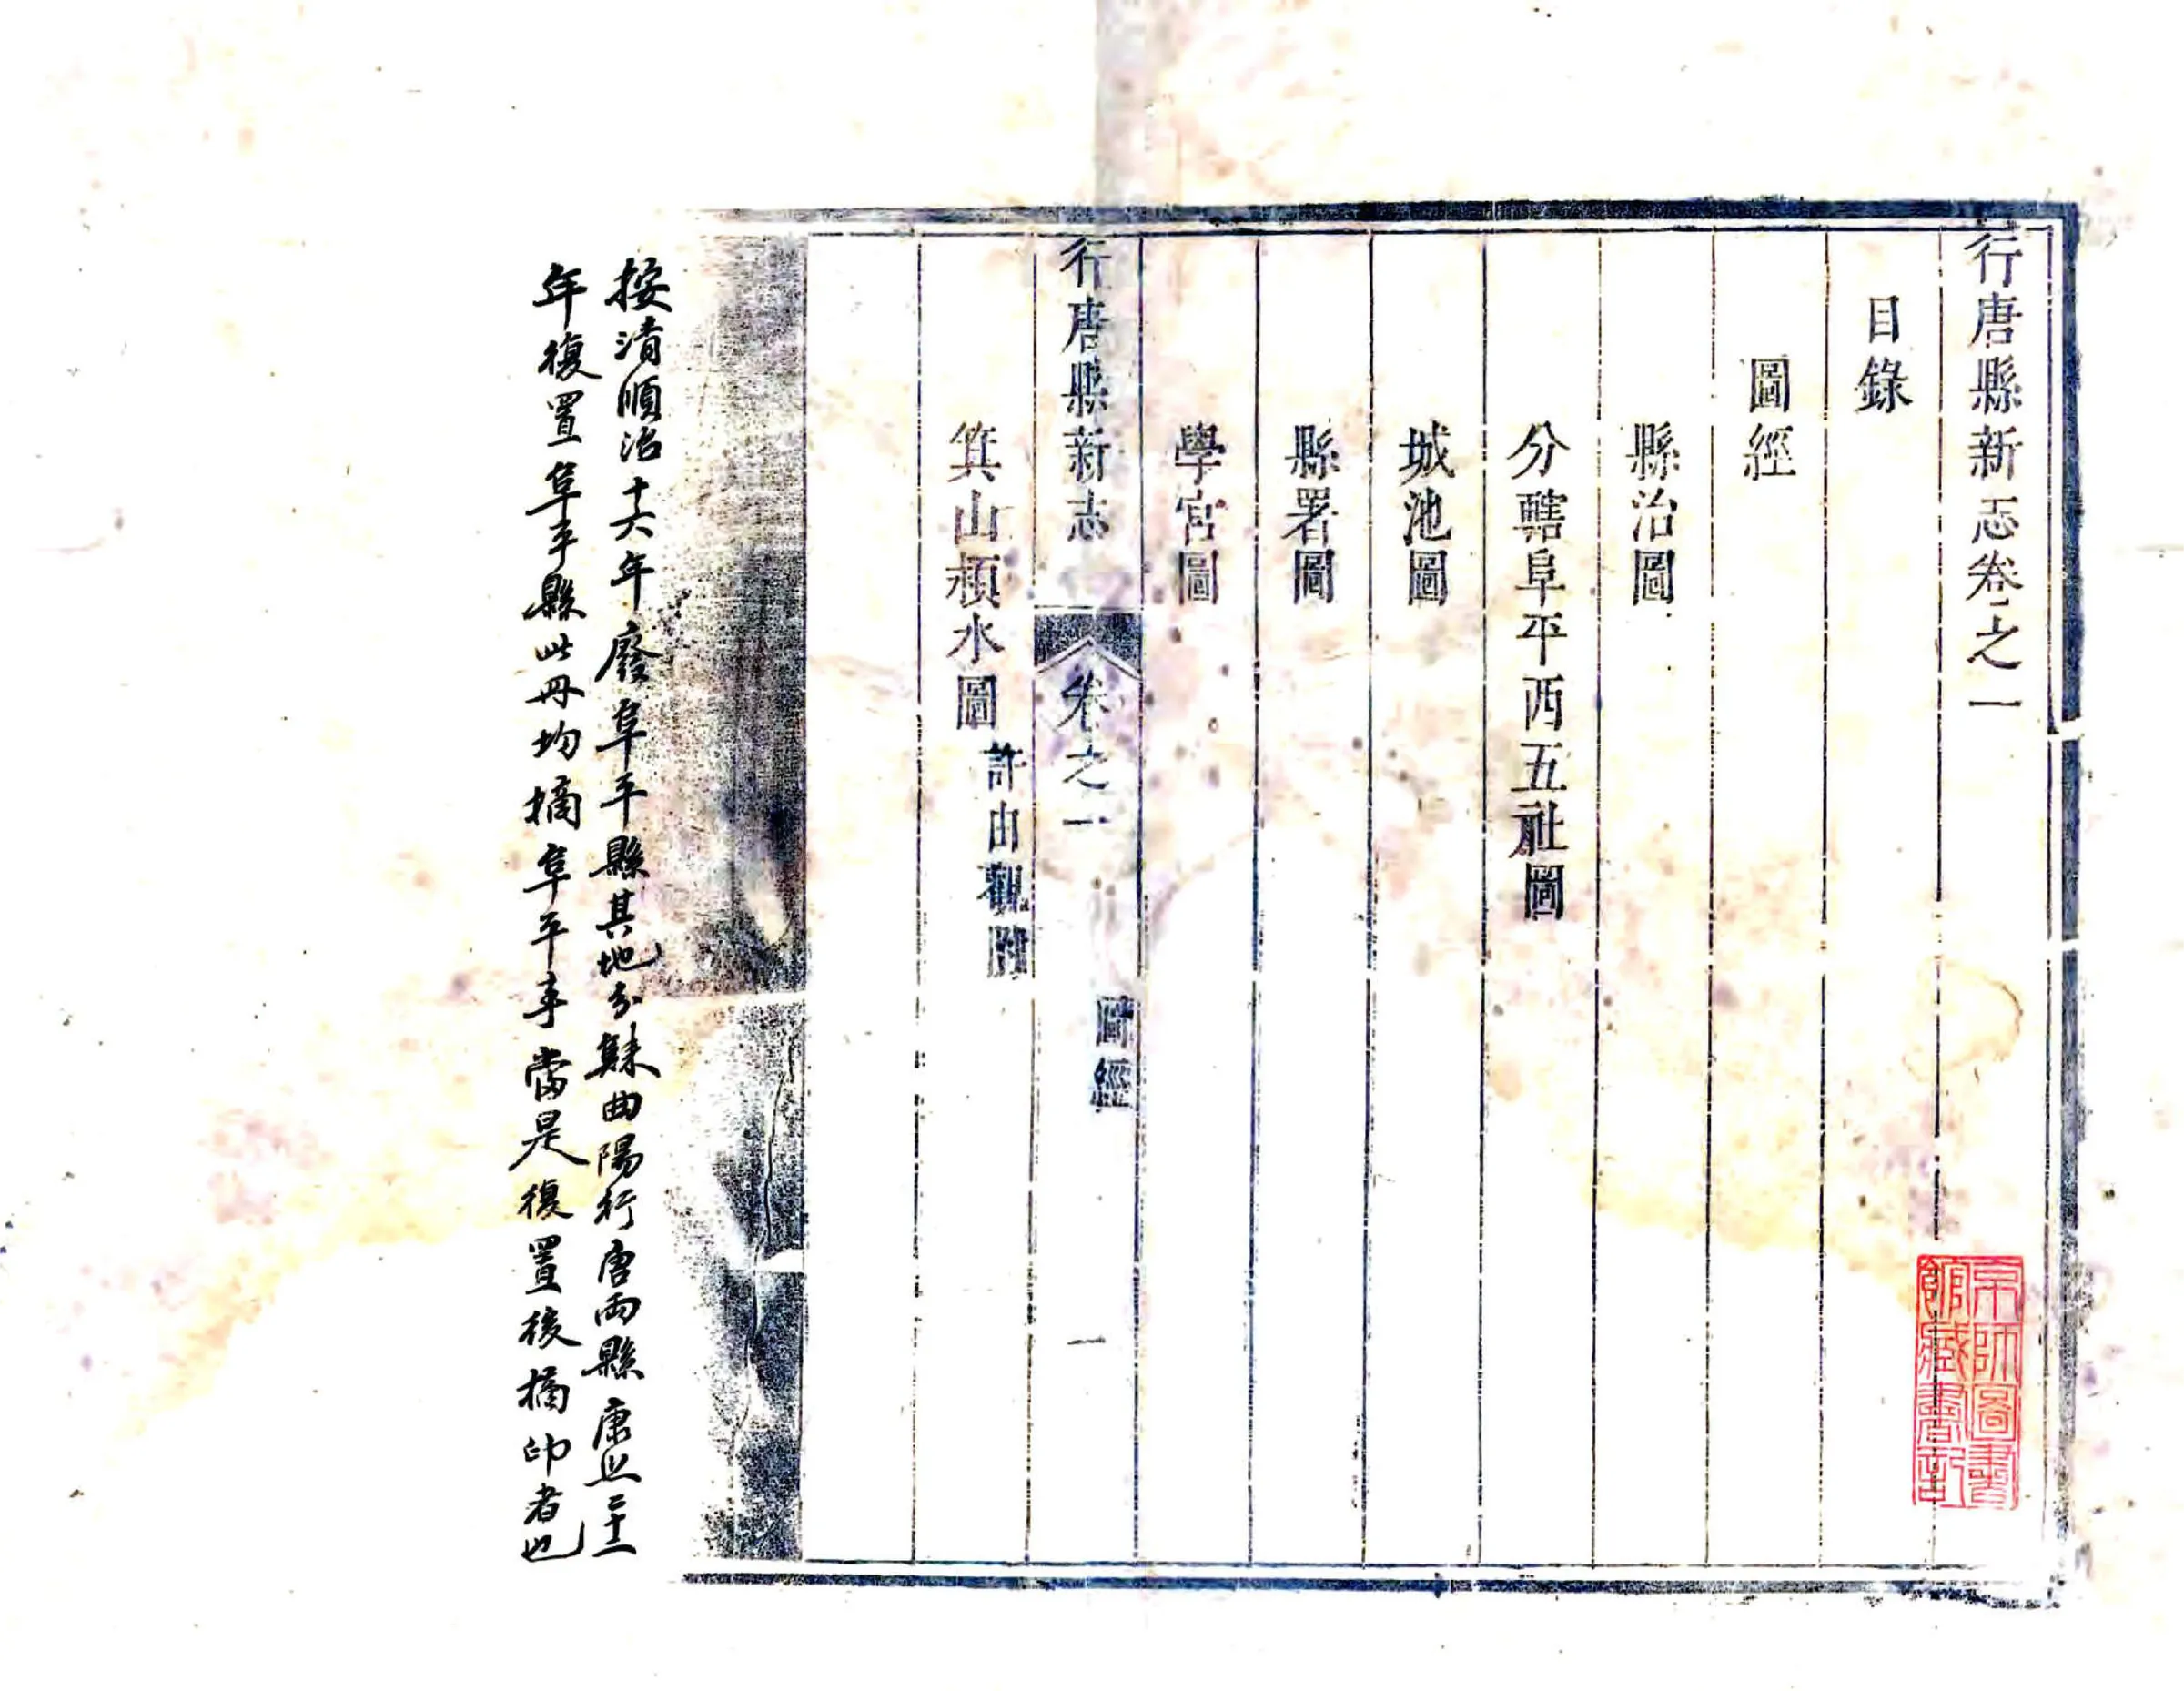 行唐縣新志卷之一
目錄
圖經
縣治圖
分轄阜平西五社圖
城池圖
縣署圖
學宮圖
行唐縣新志 卷之一 圖經 一
箕山潁水圖 許由觀附
按清順治十六年廢阜平縣其地分隸曲陽行唐兩縣康熙二十二
年復置阜平縣此冊均摘阜平事當是復置後摘印者也
京師圖書
館藏書記